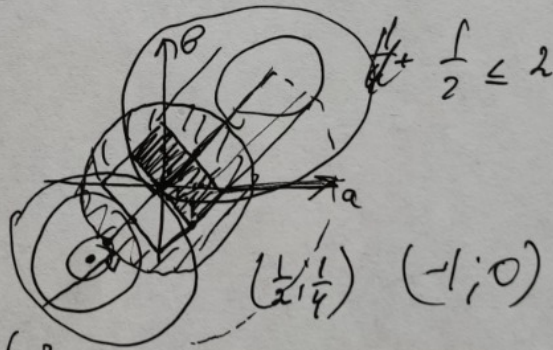 в
1/2 ≤ 2
a
(1/2; 1/4) (-1; 0)